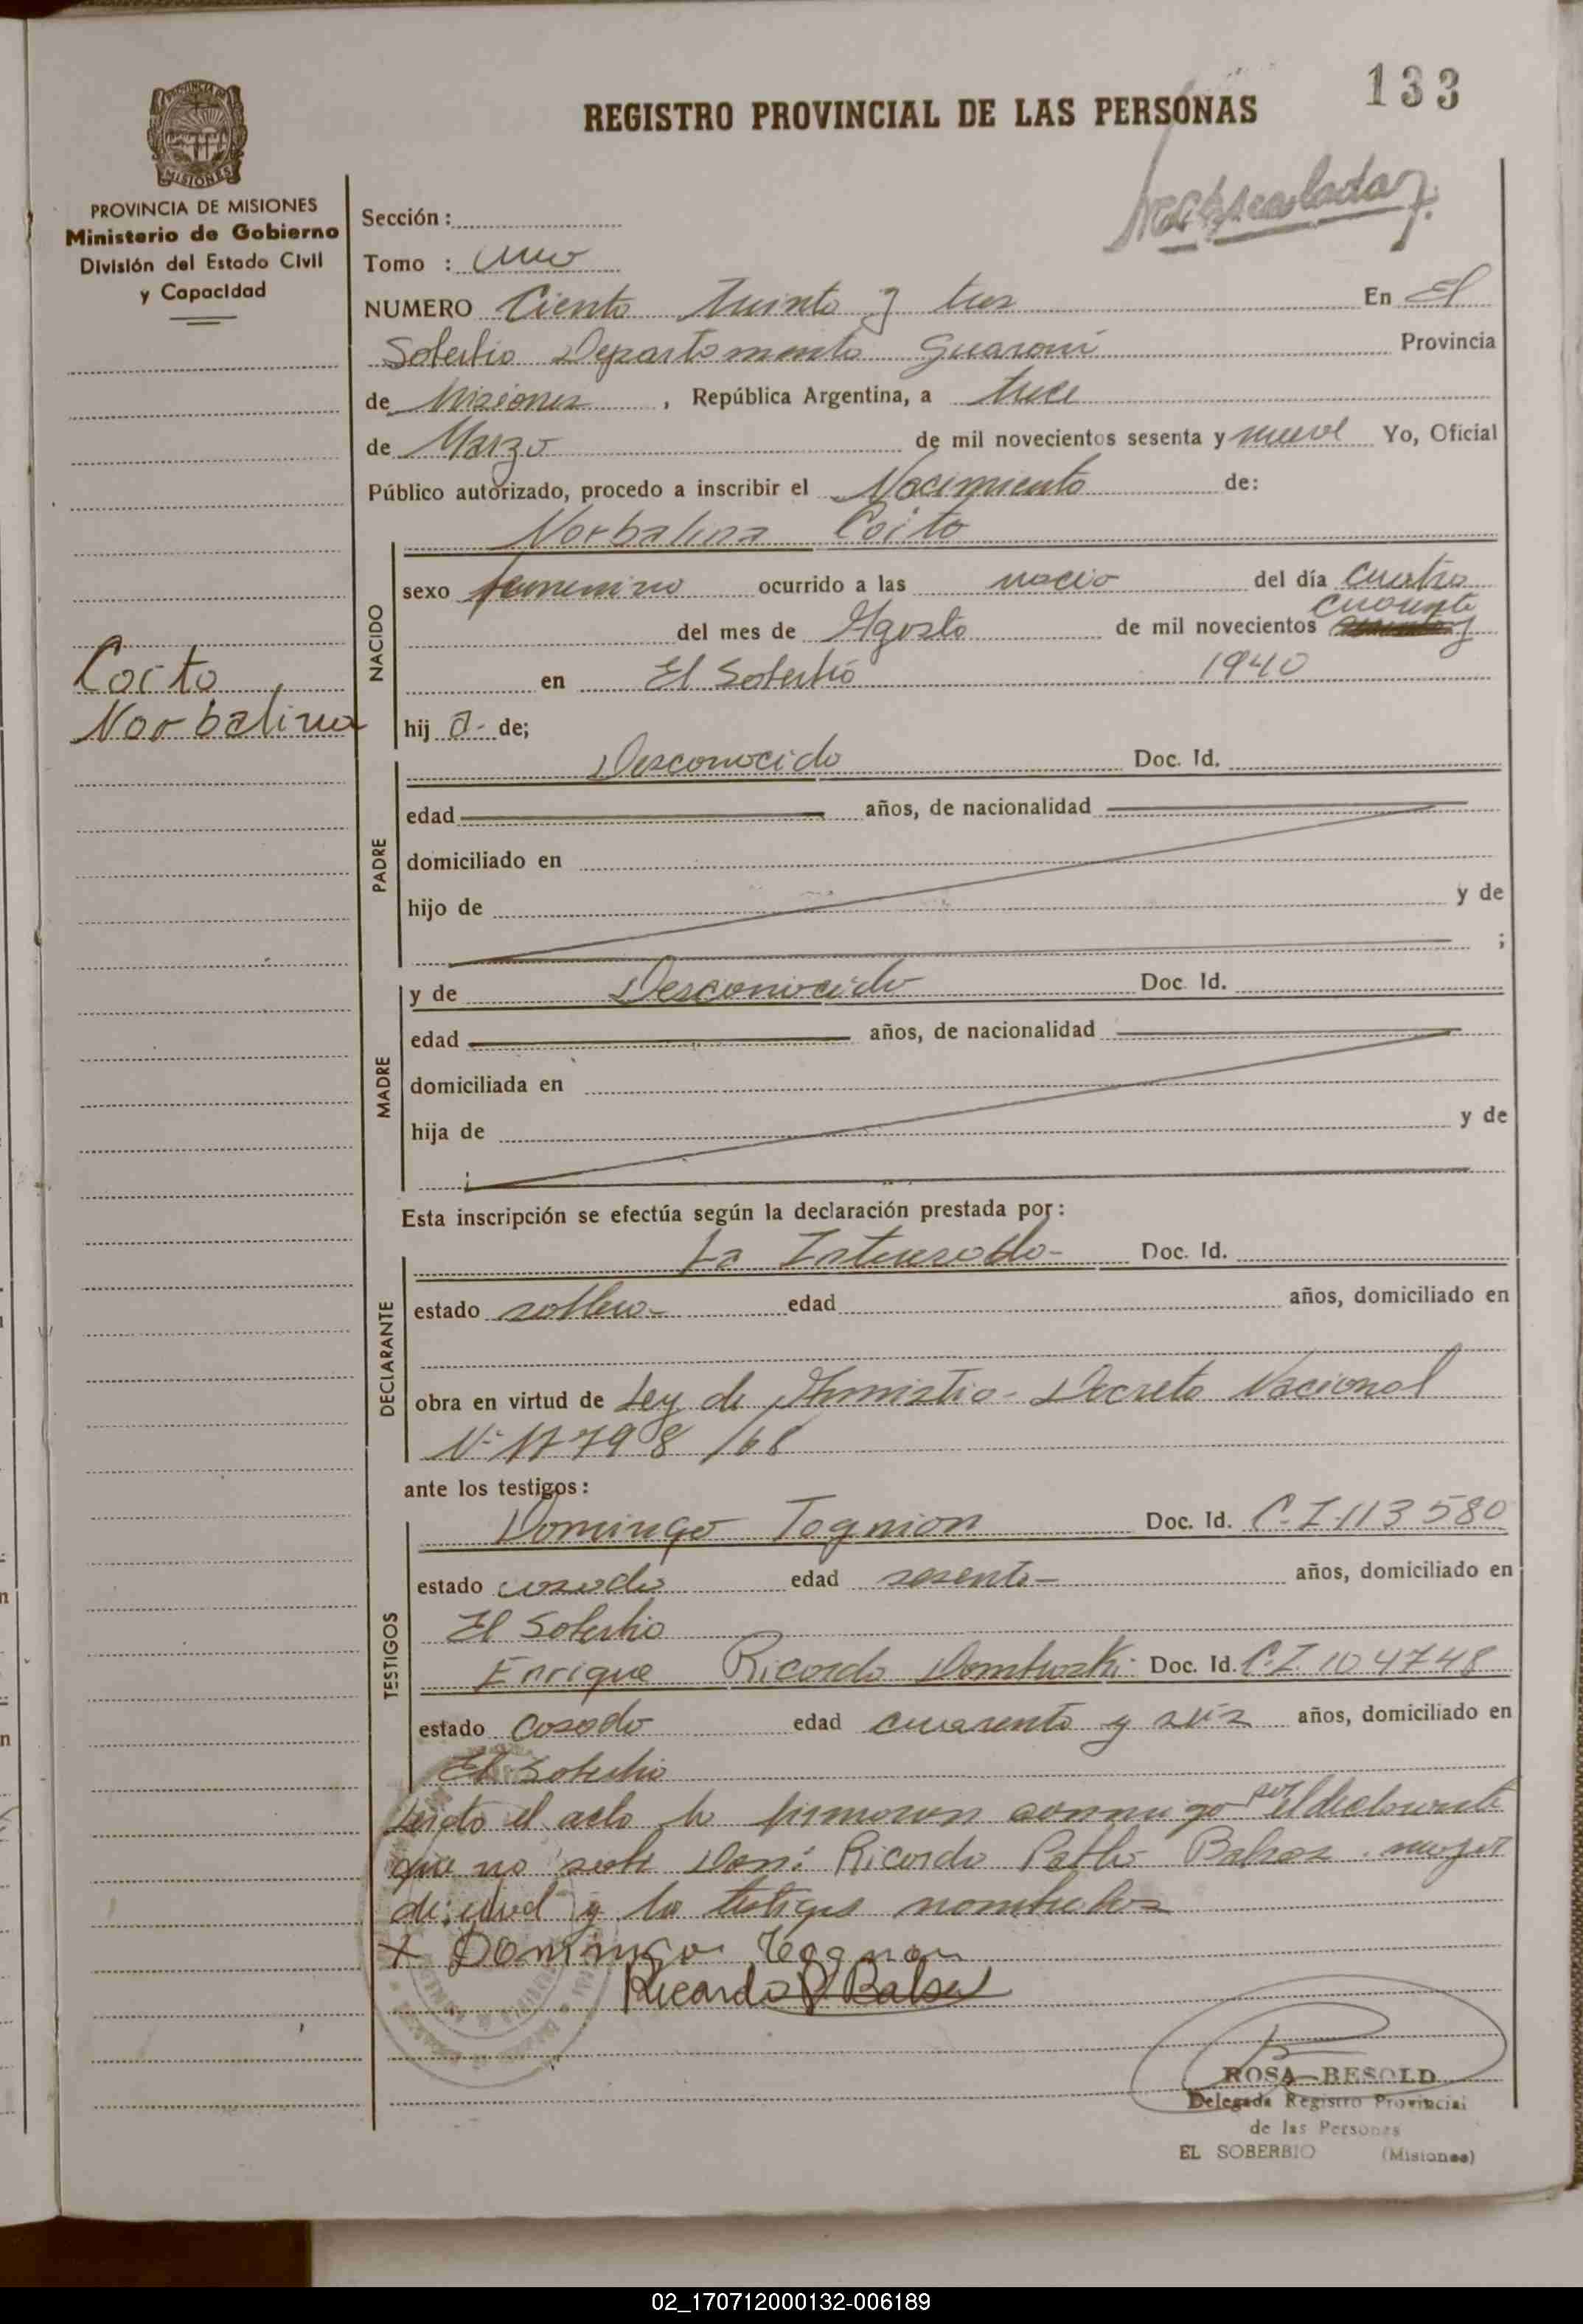 133
REGISTRO PROVINCIAL DE LAS PERSONAS
MISIONES
PROVINCIA DE MISIONES
Ministerio de Gobierno
División del Estado Civil
y Capacidad
Sección:
Tomo : Uno
NUMERO Ciento Treinta y tres En El
Soberbio Departamento Guaraní Provincia
de Misiones, República Argentina, a trece
de Marzo de mil novecientos sesenta y nueve Yo, Oficial
Público autorizado, procedo a inscribir el Nacimiento de:
Norbalina Coito
NACIDO
sexo femenino ocurrido a las nacio del día cuatro
cuarenta
del mes de Agosto de mil novecientos
en El Soberbio 1940
hij a- de;
Coito
Norbalina
PADRE
Desconocido Doc. Id.
edad años, de nacionalidad
domiciliado en
hijo de y de
;
MADRE
y de Desconocido Doc. Id.
edad años, de nacionalidad
domiciliada en
hija de y de
Esta inscripción se efectúa según la declaración prestada por:
DECLARANTE
La Interesada- Doc. Id.
estado soltera- edad años, domiciliado en
obra en virtud de Ley de Amnistia- Decreto Nacional
Nº 17798/68
ante los testigos:
TESTIGOS
Domingo Tognion Doc. Id. C.I. 113580
estado casado edad sesenta- años, domiciliado en
El Soberbio
Enrique Ricardo Doc. Id. C.I. 104748
estado casado edad cuarenta y seis años, domiciliado en
El Soberbio
Leida el acta la firmaron conmigo por el declarante
que no sabe Don: Ricardo Pablo mayor
de edad y los testigos nombrados
+ Domingo
Ricardo P Balser
ROSA BESOLD
Delegada Registro Provincial
de las Personas
EL SOBERBIO (Misiones)
02_170712000132-006189